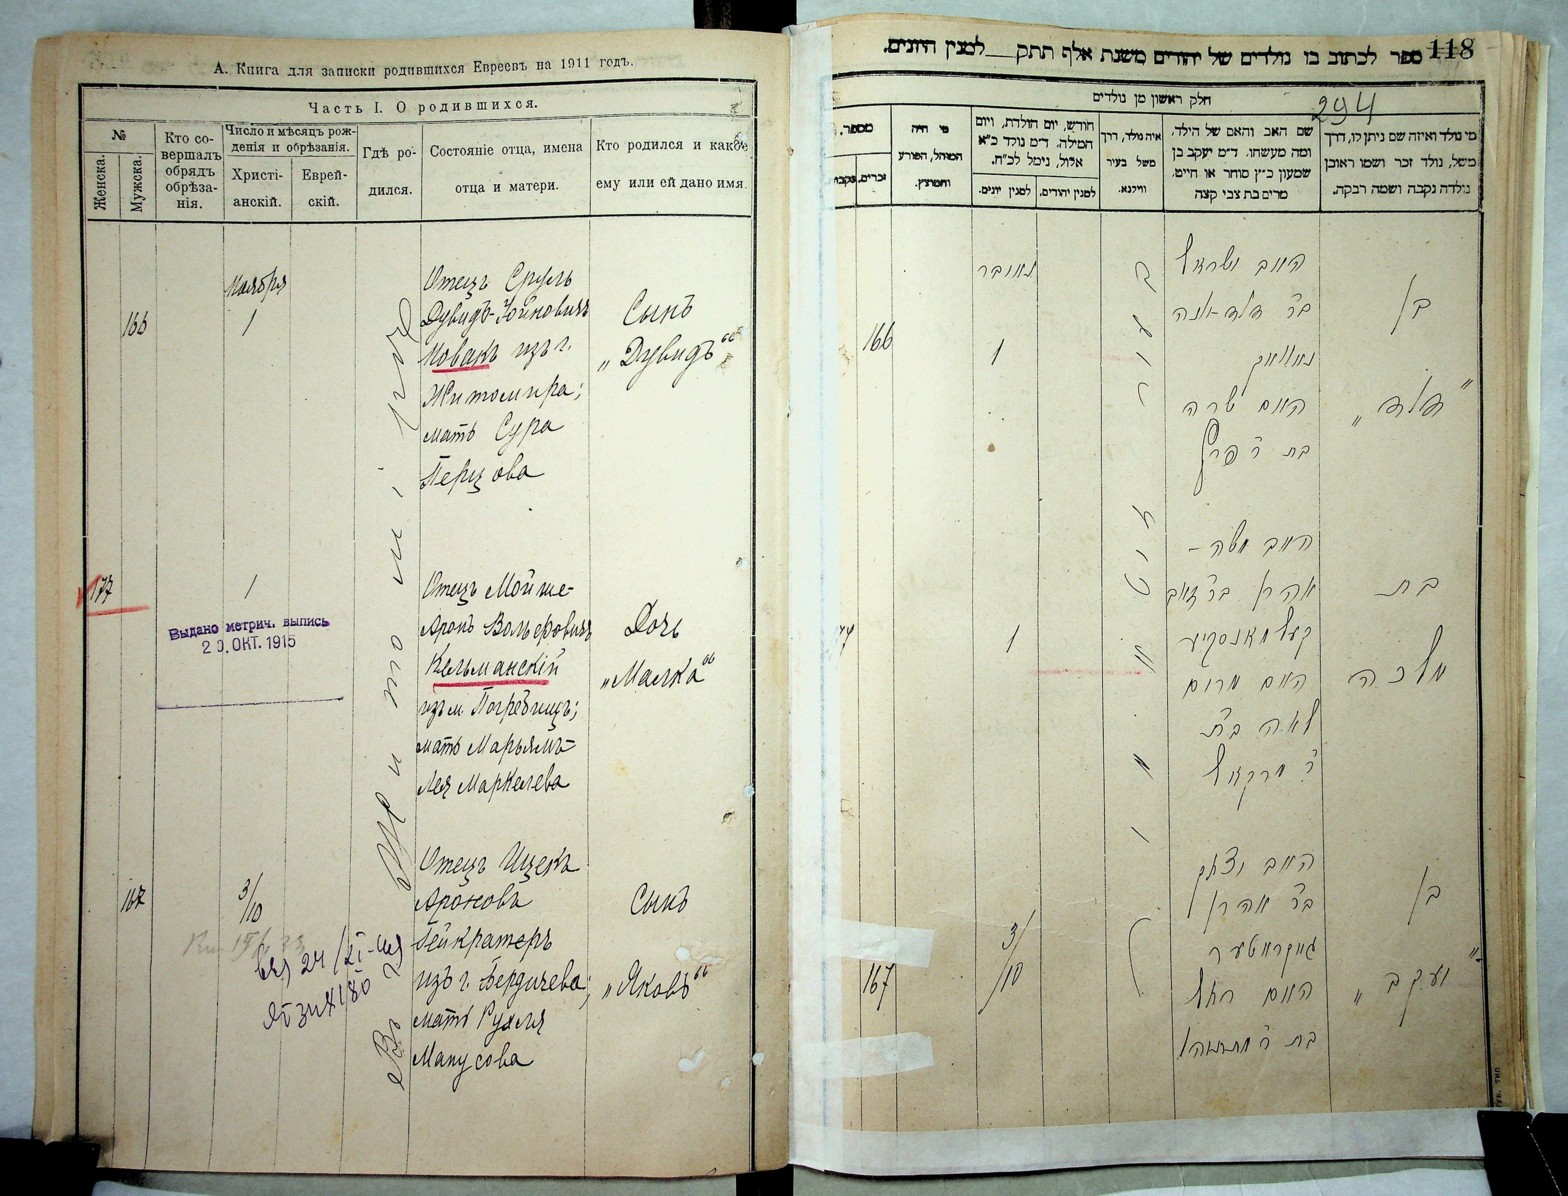 А. Книга для записки родившихся Евреевъ на 1911 годъ.
Часть I. О родившихся.
№
Женска.
Мужска.
Кто со-
вершалъ
обрядъ
обрѣза-
нія.
Число и мѣсяцъ рож-
денія и обрѣзанія.
Христі-
анскій.
Еврей-
скій.
Гдѣ ро-
дился.
Состояніе отца, имена
отца и матери.
Кто родился и какое
ему или ей дано имя.
166
Ноября
1
Отецъ Сруль
Дувидъ-Хайновичъ
Новакъ изъ г.
Житомира;
мать Сура
Перцова
Сынъ
„Дувидъ“
177
1
Выдано метрич. выпись
2 0. ОКТ. 1915
Отецъ Мойше-
Аронъ Вольфовичъ
Кельманскій
изъ м. Погребищъ;
мать Марьямъ-
Лея Маркелева
Дочь
„Малка“
167
3/10
Отецъ Ицекъ
Ароновъ
Гейкратеръ
изъ г. Бердичева;
мать Рухля
Манусова
Сынъ
„Яковъ“
Въ г. Житомірѣ
118
ספר לכתוב בו נולדים של יהודים משנת אלף תתק למנין היונים.
294
חלק ראשון מן נולדים
מי נולד ואיזה שם ניתן לו, דרך
משל, נולד זכר ושמו ראובן
נולדה נקבה ושמה רבקה.
שם האב והאם של הילד.
ומה מעשהו. ד״מ יעקב בן
שמעון כ״ץ סוחר או חייט.
מרים בת צבי קצה
איה נולד, דרך
משל בעיר
ווילנא.
חודש, יום הולדת, ויום
המילה. ד״מ נולד כ״א
אלול, נימל לכ״ח.
למנין יהודים.
למנין יונים.
מי היה
המוהל, הפורע
והמוצץ.
מספר,
זכרים.
בן
האב ישראל
האם שרה
נאוואק
1
166
בת
מלכה
האב משה -
אהרן בר זאב
קעלמאנסקיי
האם מרים
לאה בת
1
בן
„יעקב“
האב יצחק
בר אהרן
גייקראטער
האם רחל
3/10
167